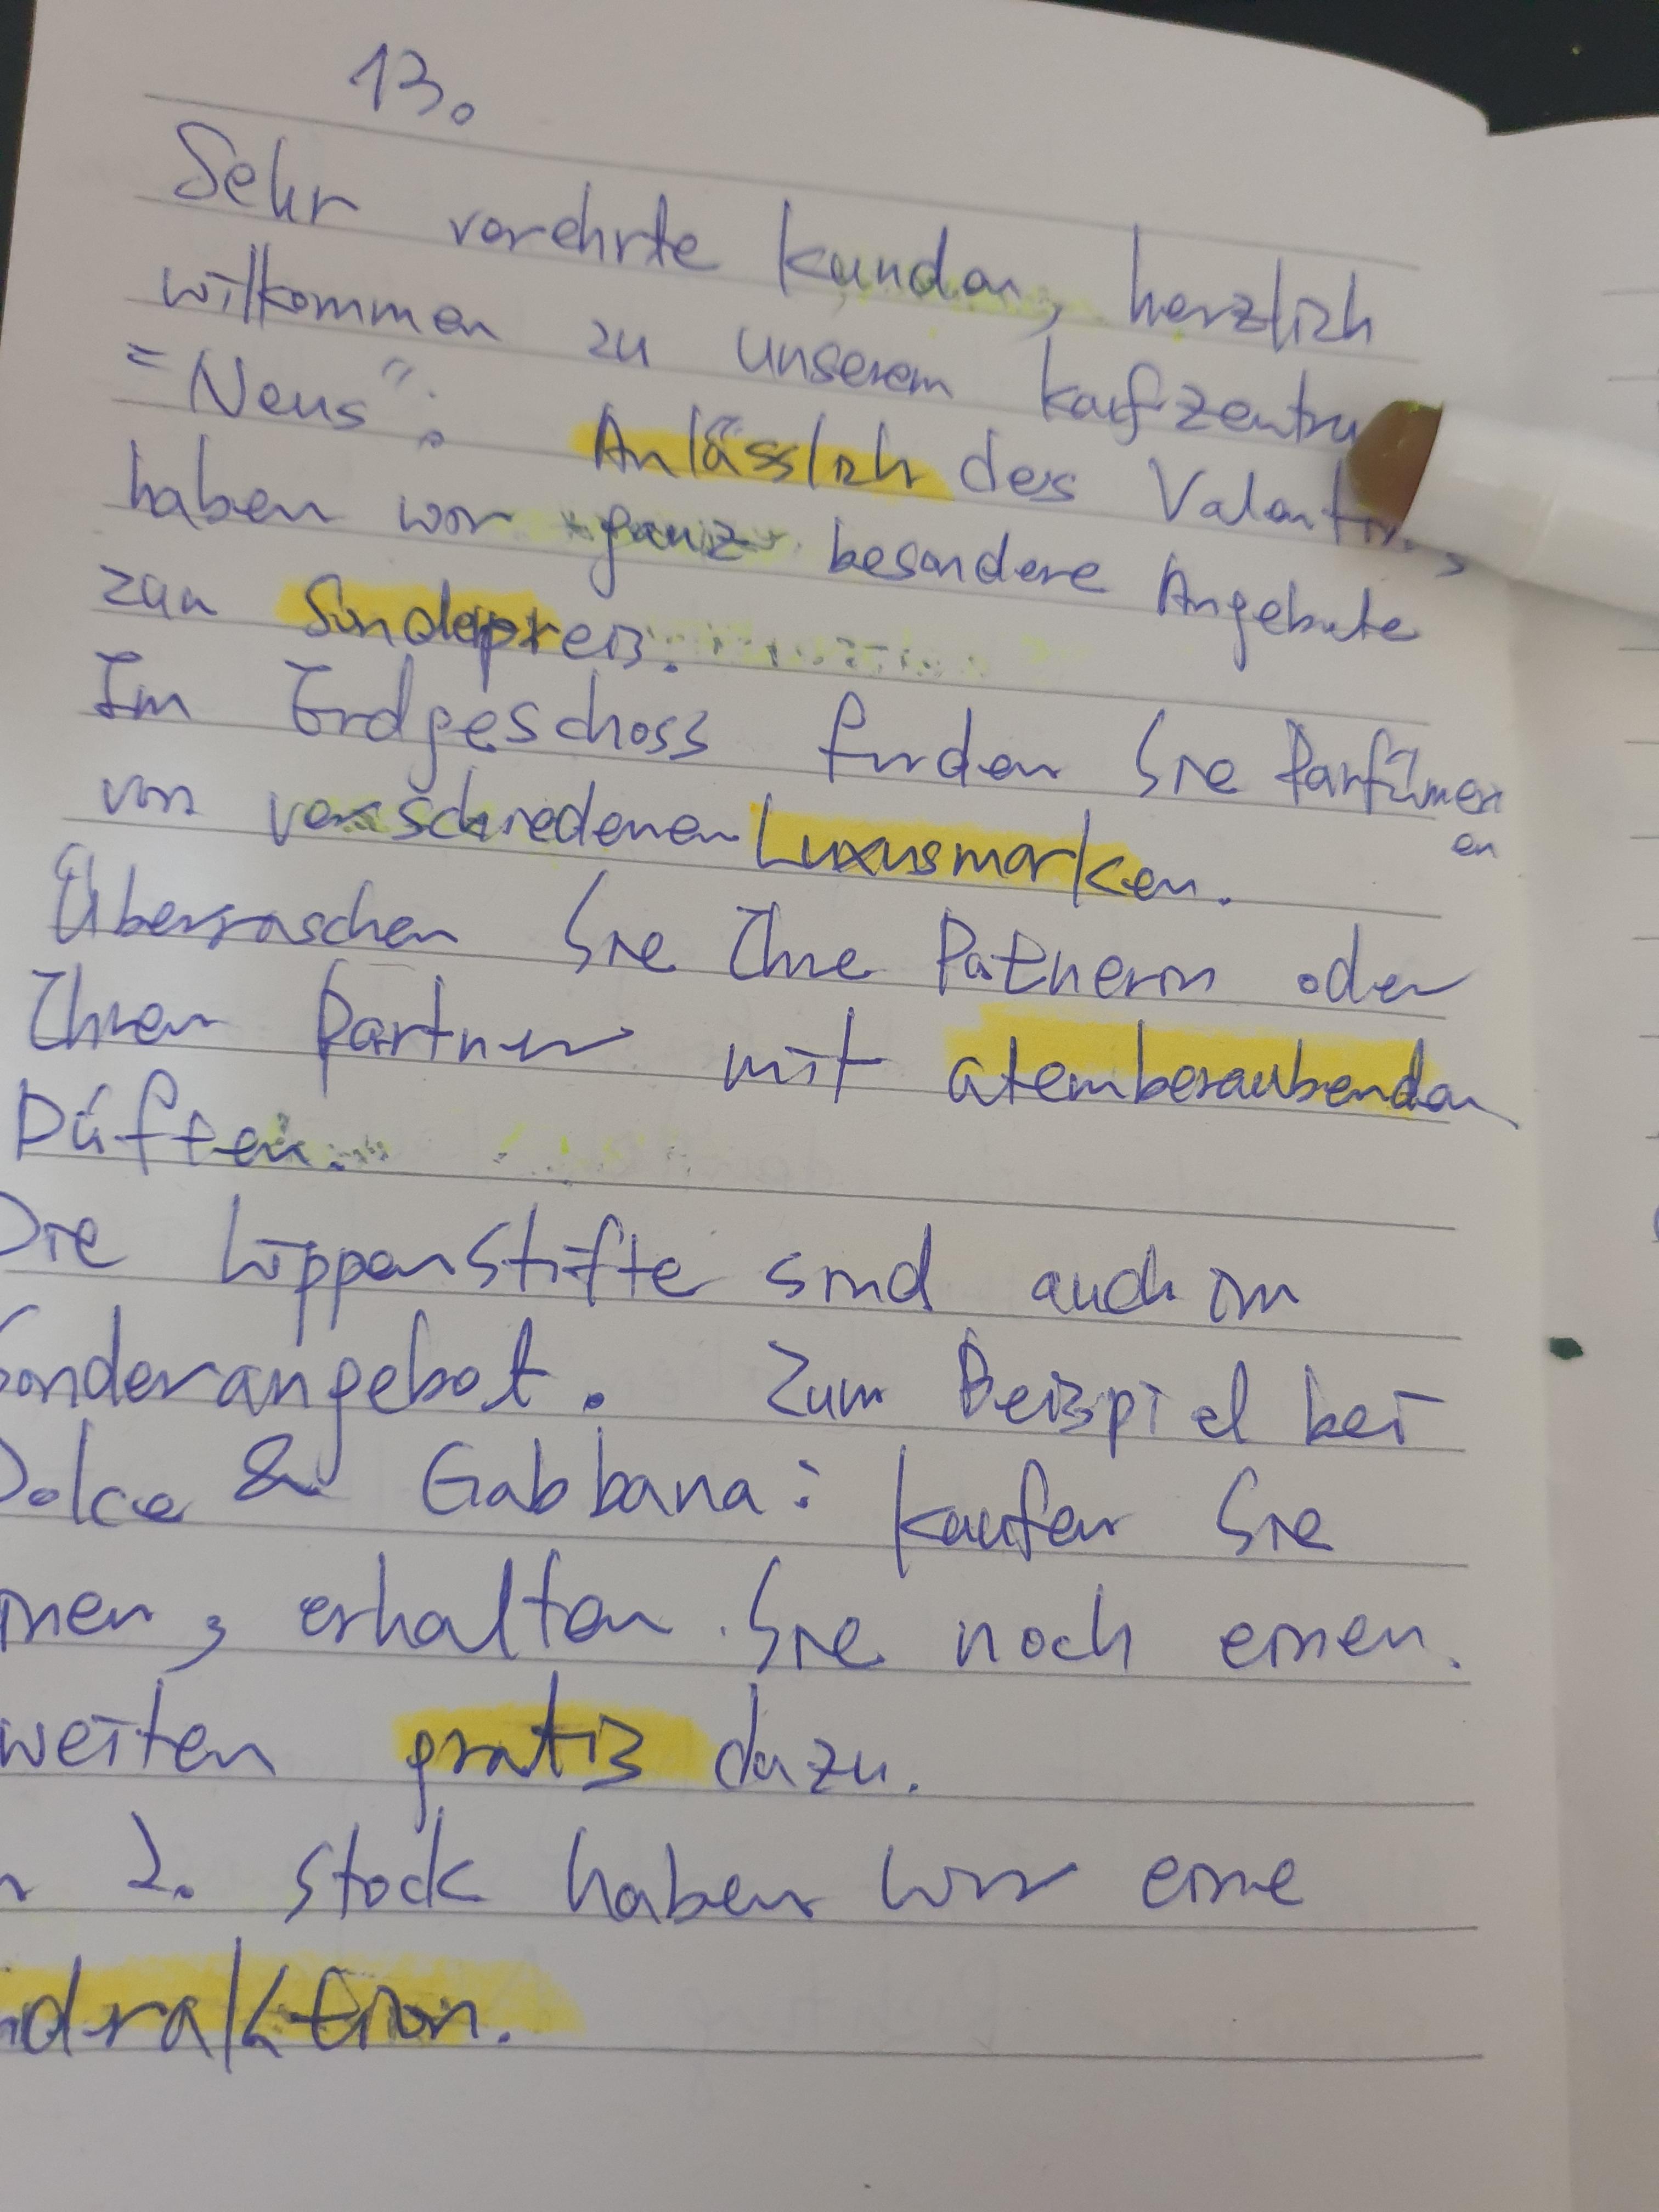 13.
Sehr verehrte Kunden, herzlich
willkommen zu unserem Kaufzentru
"Neus". Anlässlich des Valentins
haben wir ganz besondere Angebote
zum Sonderpreis.
Im Erdgeschoss finden Sie Parfümen
en
von verschiedenen Luxusmarken.
Überraschen Sie Ihre Patnerin oder
Ihren Partner mit atemberaubenden
Düften.
Die Lippenstifte sind auch im
Sonderangebot. Zum Beispiel bei
Dolce & Gabbana: Kaufen Sie
inen, erhalten Sie noch einen.
weiten gratis dazu.
2. Stock haben wir eine
ndraktion.